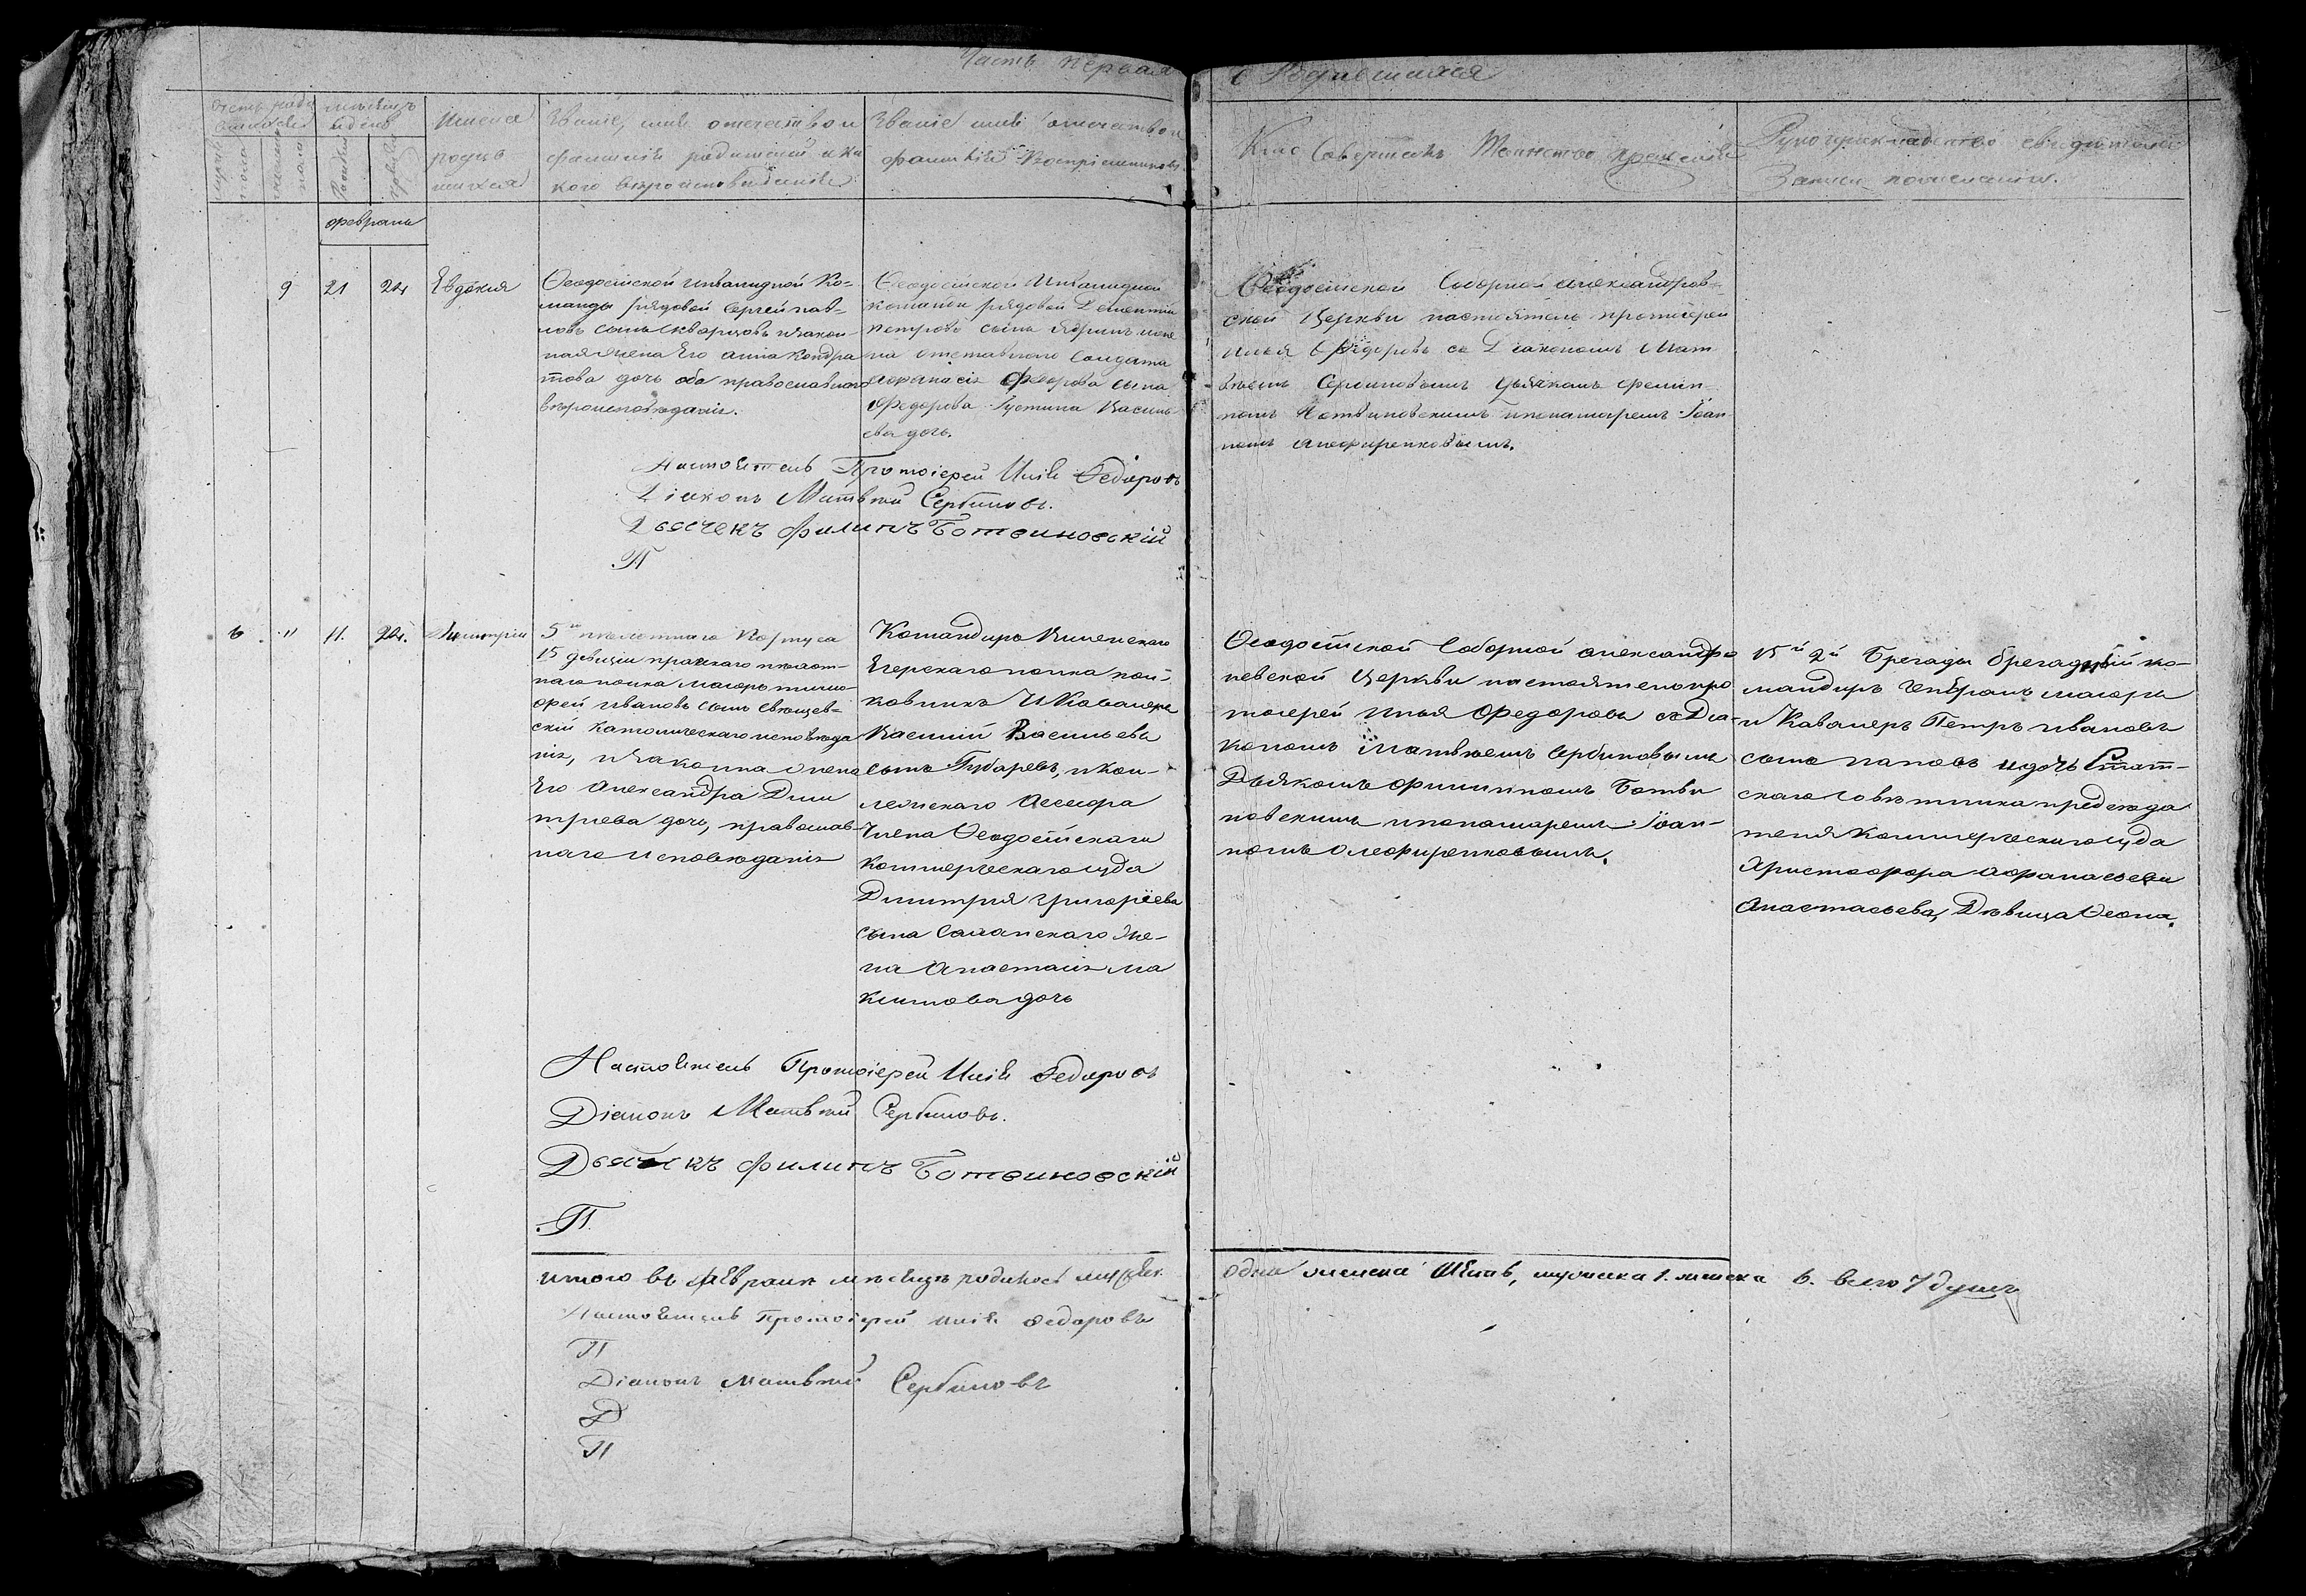 Часть первая
о Родившихся
Имена
родив
шихся
Званіе, имя отечество и
фамилія родителей и ка
кого вѣроисповѣданія
Званіе имя отечество и
фамилія Воспріемниковъ
Кто Совершалъ Таинство крещенія
Рукоприкладство свидѣтелей
Записи по желанію.
февраль
9 21 24 Евдокия
Ѳеодосійской инвалидной Ко-
манды рядовой Сергей пав-
ловъ сынъ Скварцовъ и закон-
ная жена Его анна Кондра
това дочь оба православнаго
вѣроисповѣданія.
Ѳеодосійской Инвалидной
команды рядовой Дементій
петровъ сынъ
на отставного Солдата
Афанасія Федорова сына
Федорова Густина Василь
ева дочь.
Ѳеодосійской Соборной александров-
ской Церкви настоятель протоіерей
Илья Федоровъ съ Діакономъ Мат
вѣемъ Сербиновымъ дьякомъ филип-
помъ Ботвиновскимъ и понамаремъ Іоан
номъ Алефиренковымъ.
Настоятель Протоіерей Илія Федоровъ
Діаконъ Матвѣй Сербиновъ.
Дьячекъ Филипъ Ботвиновскій
П
6 " 11. 24. Димитрий
5го пѣхотнаго Корпуса
15 дивизіи пражскаго пѣхот-
наго полка маиоръ тимо-
фей ивановъ сынъ Свѣщев-
скій католическаго исповѣда
нія, и законна жена
Его Александра Дми
триева дочь, православ-
наго исповѣданія
Командиръ Виленскаго
Егерскаго полка пол-
ковникъ И Кавалеръ
Василій Васильевъ
сынъ Губаревъ, и Кол-
лежскаго Асесора
Члена Ѳеодосійскаго
Коммерческаго суда
Димитрия григоріева
сына Саланскаго Же-
на Анастасія Ма
ксимова дочь
Ѳеодосійской Соборной александро
невской Церкви настоятель про
тоіерей Илья Федоровъ съ Діа-
кономъ Матвѣемъ Сербиновымъ
Дьякомъ филиппомъ Ботви
новскимъ и понамаремъ Іоан-
номъ Алефиренковымъ.
15й 2й Брегады брегадный ко-
мандиръ генералъ маиоръ
и Кавалеръ Петръ ивановъ
сынъ паповъ и дочь Стат-
скаго совѣтника предсѣда
теля Коммерческаго суда
Христофора Афанасьева
Анастасьева, Дѣвица Ѳеона.
Настоятель Протоіерей Илія Федоровъ
Діаконъ Матвѣй Сербиновъ.
Дьячекъ Филипъ Ботвиновскій
П.
итого въ февралѣ мѣсяцѣ родилось мужеск.
одна женска Шесть, мужеска 1. женска 6. всего 7 душъ
Настоятель Протоіерей Илія Федоровъ
П
Діаконъ Матвѣй Сербиновъ
Д
П